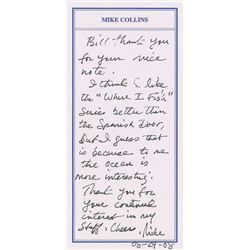 MIKE COLLINS
Bill thank you
for your nice
note.
I think I like
the "Where I Fish"
Series better than
the Spanish Door,
but I guess that
is because to me
the ocean is
more interesting.
Thank you for
your continued
interest in my
stuff, Cheers, Mike